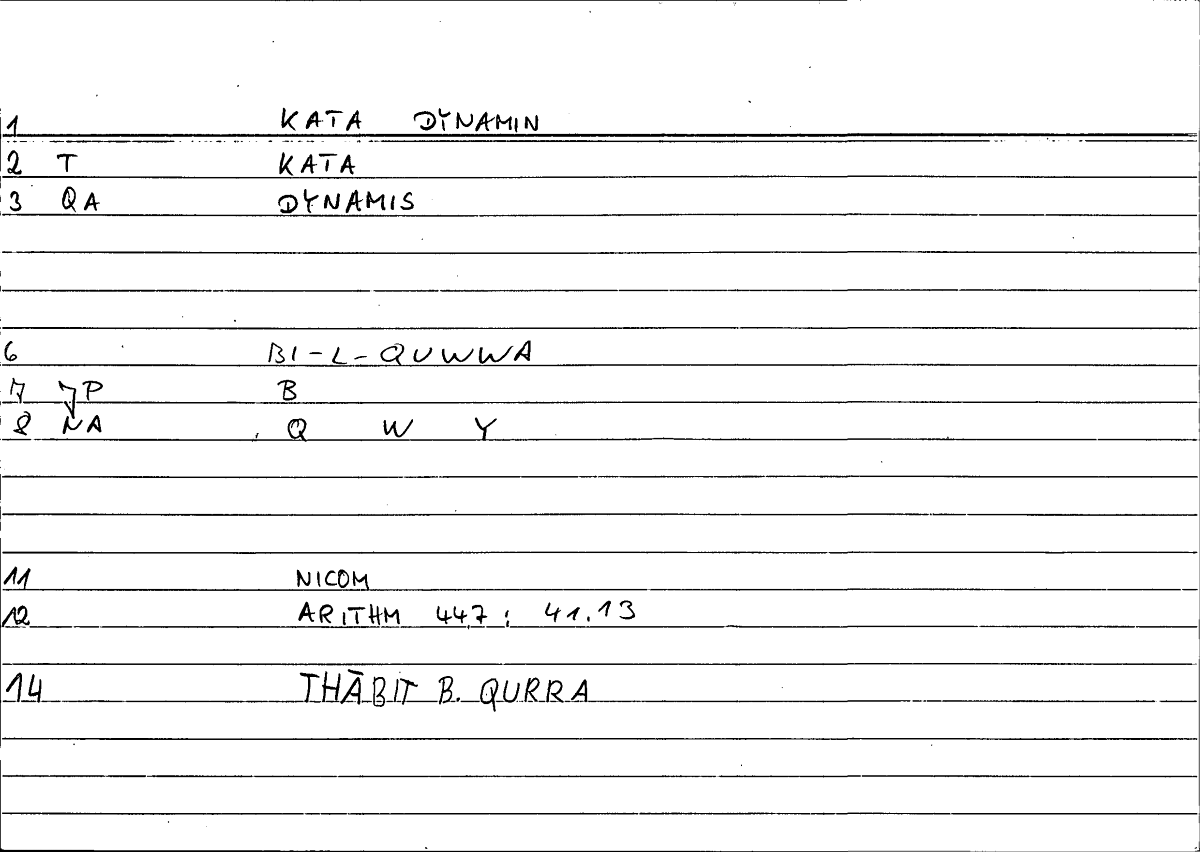 1 KATA DYNAMIN
2 T KATA
3 QA DYNAMIS
6 BI-L-QUWWA
7 JP B
8 NA Q W Y
11 NICOM
12 ARITHM 447 : 41.13
14 THĀBIT B. QURRA